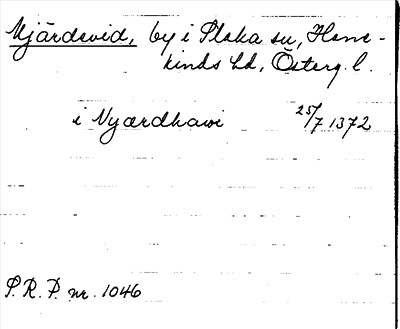 Njärdevid, by i Ploka sn, Hane-
kinds hd, Österg. l.
i Nyærdhawi 25/7 1372
S.R.P. nr. 1046